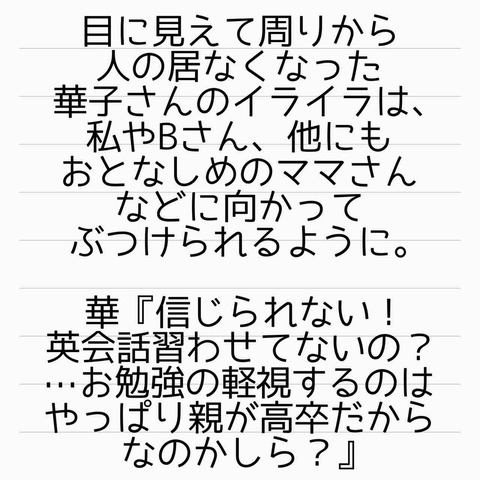 目に見えて周りから
人の居なくなった
華子さんのイライラは、
私やBさん、他にも
おとなしめのママさん
などに向かって
ぶつけられるように。
華『信じられない！
英会話習わせてないの？
…お勉強の軽視するのは
やっぱり親が高卒だから
なのかしら？』